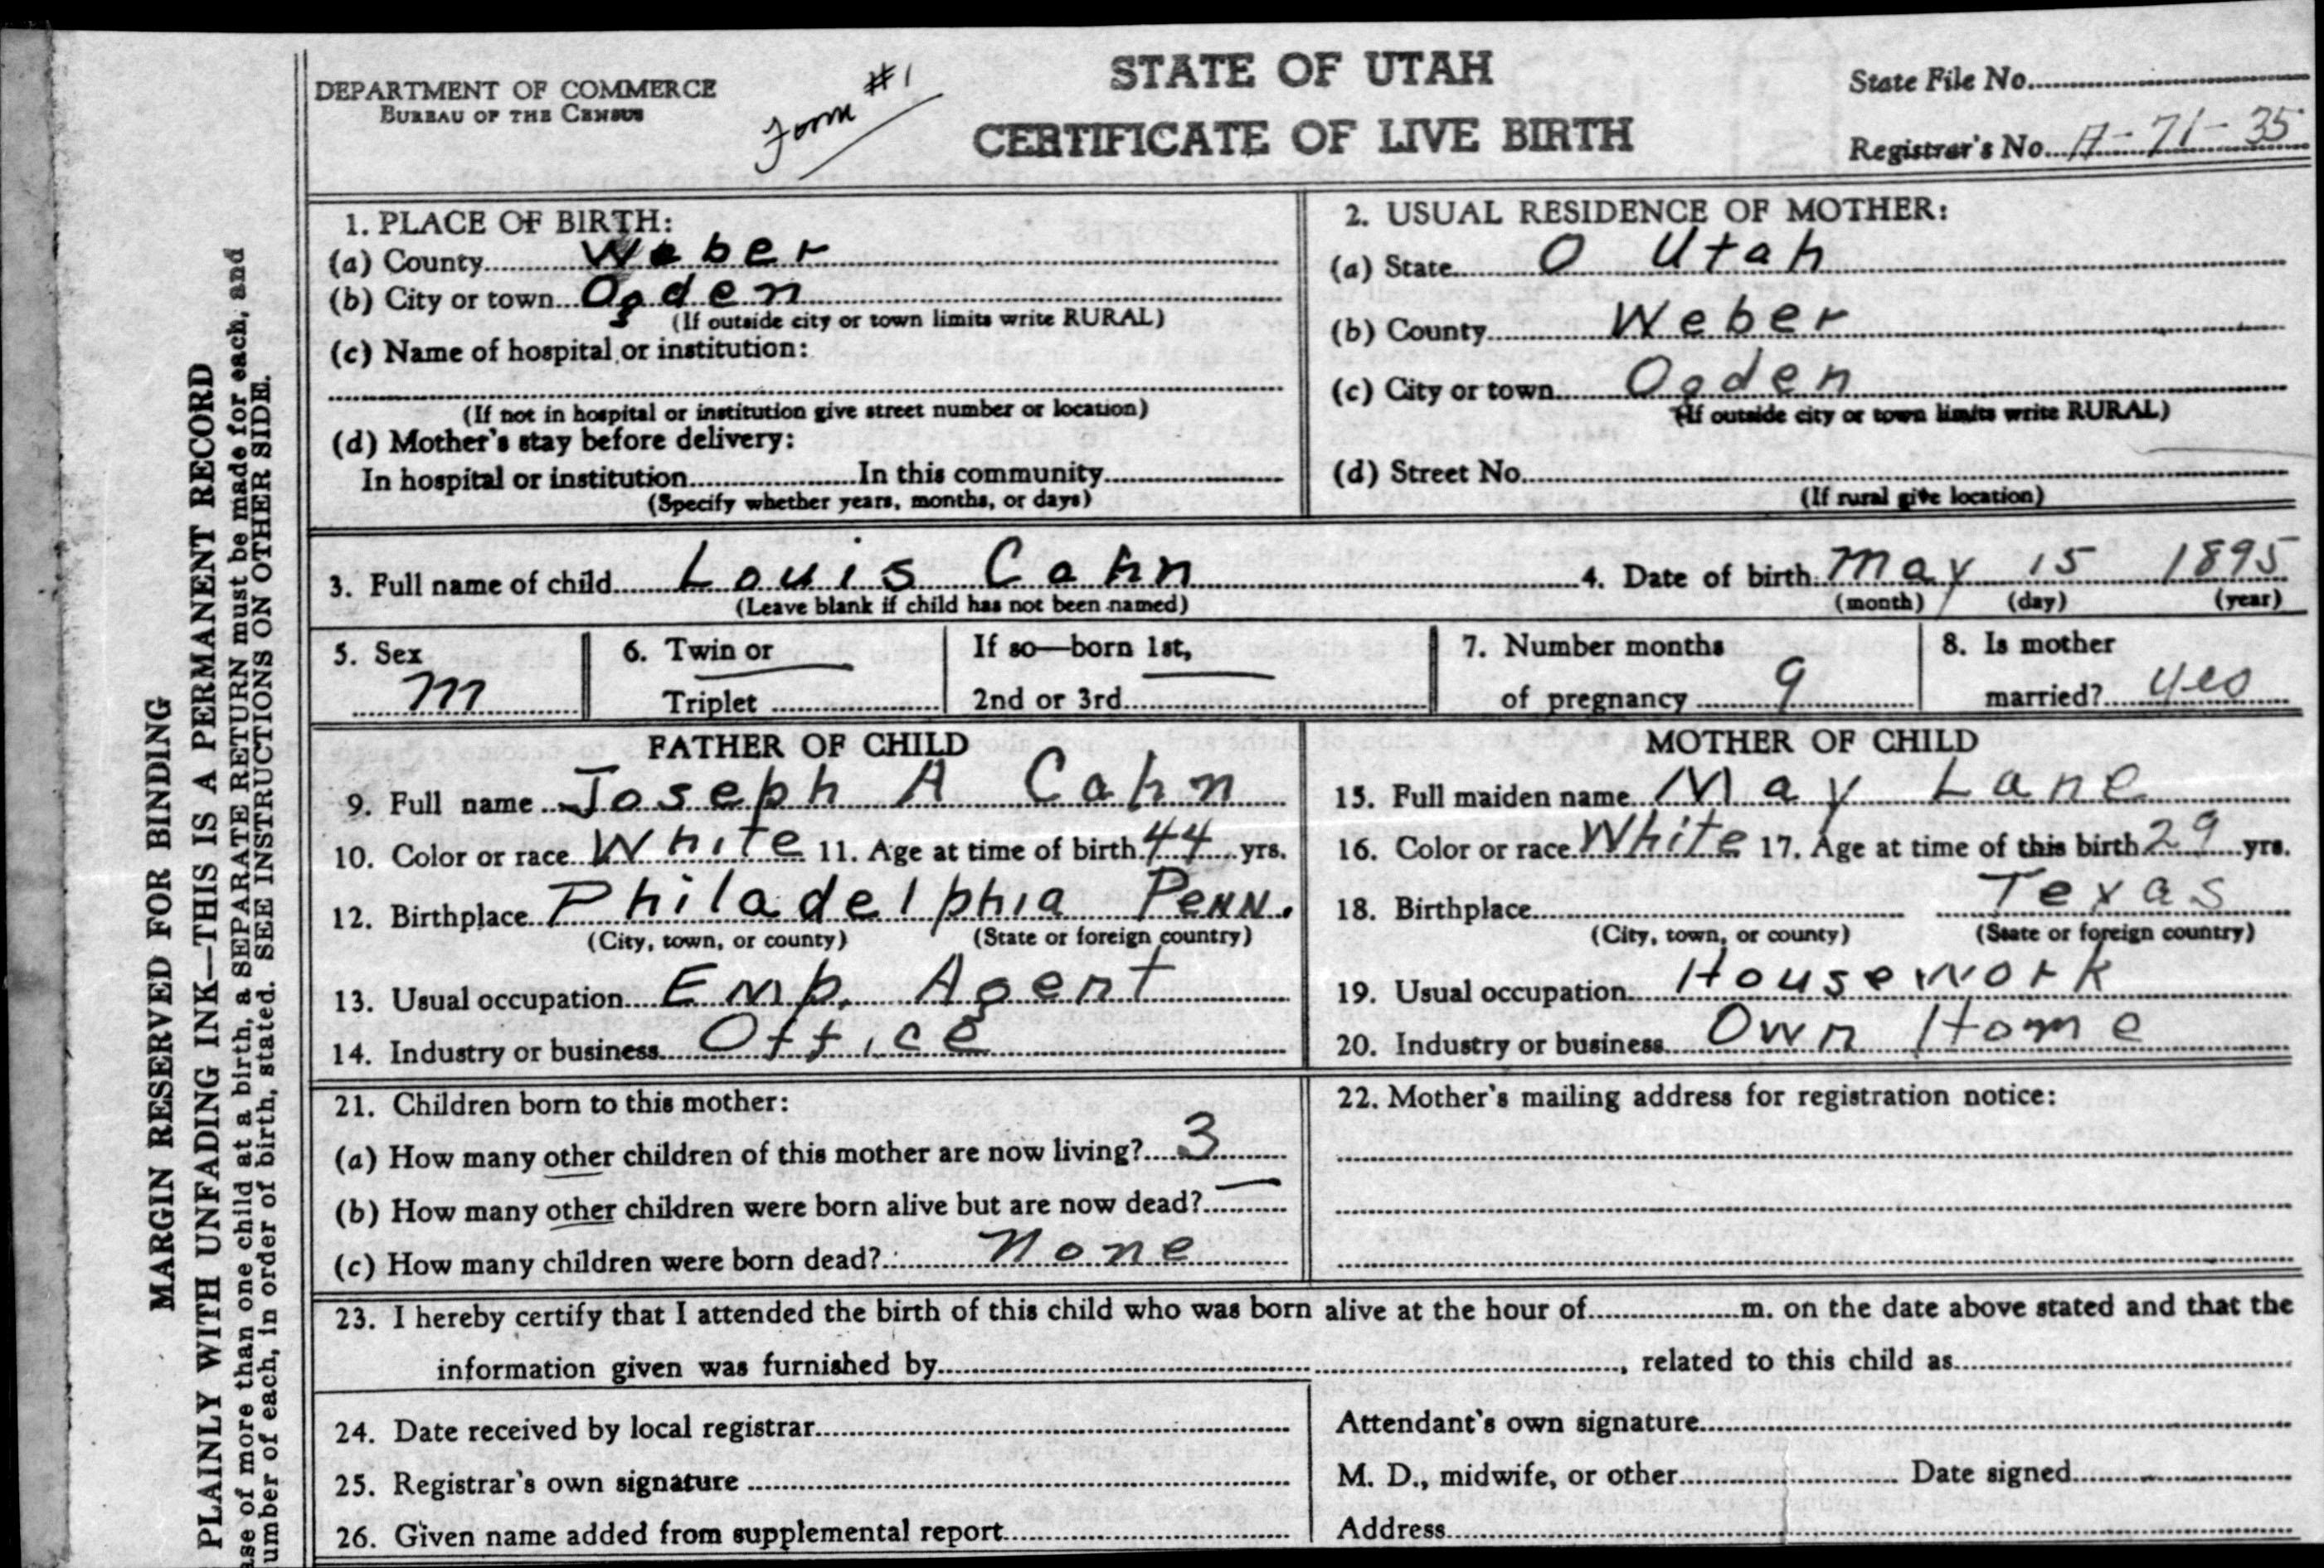 DEPARTMENT OF COMMERCE
BUREAU OF THE CENSUS
Form #1
STATE OF UTAH
CERTIFICATE OF LIVE BIRTH
State File No.
Registrar's No. A-71-35
MARGIN RESERVED FOR BINDING
PLAINLY WITH UNFADING INK—THIS IS A PERMANENT RECORD
ase of more than one child at a birth, a SEPARATE RETURN must be made for each, and
umber of each, in order of birth, stated. SEE INSTRUCTIONS ON OTHER SIDE.
1. PLACE OF BIRTH:
(a) County Weber
(b) City or town Ogden
(If outside city or town limits write RURAL)
(c) Name of hospital or institution:
(If not in hospital or institution give street number or location)
(d) Mother's stay before delivery:
In hospital or institution In this community
(Specify whether years, months, or days)
2. USUAL RESIDENCE OF MOTHER:
(a) State O Utah
(b) County Weber
(c) City or town Ogden
(If outside city or town limits write RURAL)
(d) Street No.
(If rural give location)
3. Full name of child Louis Cahn 4. Date of birth May 15 1895
(Leave blank if child has not been named) (month) (day) (year)
5. Sex
M
6. Twin or
Triplet
If so—born 1st,
2nd or 3rd
7. Number months
of pregnancy 9
8. Is mother
married? yes
FATHER OF CHILD
9. Full name Joseph A Cahn
10. Color or race White 11. Age at time of birth 44 yrs.
12. Birthplace Philadelphia Penn.
(City, town, or county) (State or foreign country)
13. Usual occupation Emp. Agent
14. Industry or business Office
MOTHER OF CHILD
15. Full maiden name May Lane
16. Color or race White 17. Age at time of this birth 29 yrs.
18. Birthplace Texas
(City, town, or county) (State or foreign country)
19. Usual occupation Housework
20. Industry or business Own Home
21. Children born to this mother:
(a) How many other children of this mother are now living? 3
(b) How many other children were born alive but are now dead? —
(c) How many children were born dead? None
22. Mother's mailing address for registration notice:
23. I hereby certify that I attended the birth of this child who was born alive at the hour of m. on the date above stated and that the
information given was furnished by , related to this child as
24. Date received by local registrar
25. Registrar's own signature
26. Given name added from supplemental report
Attendant's own signature
M. D., midwife, or other Date signed
Address